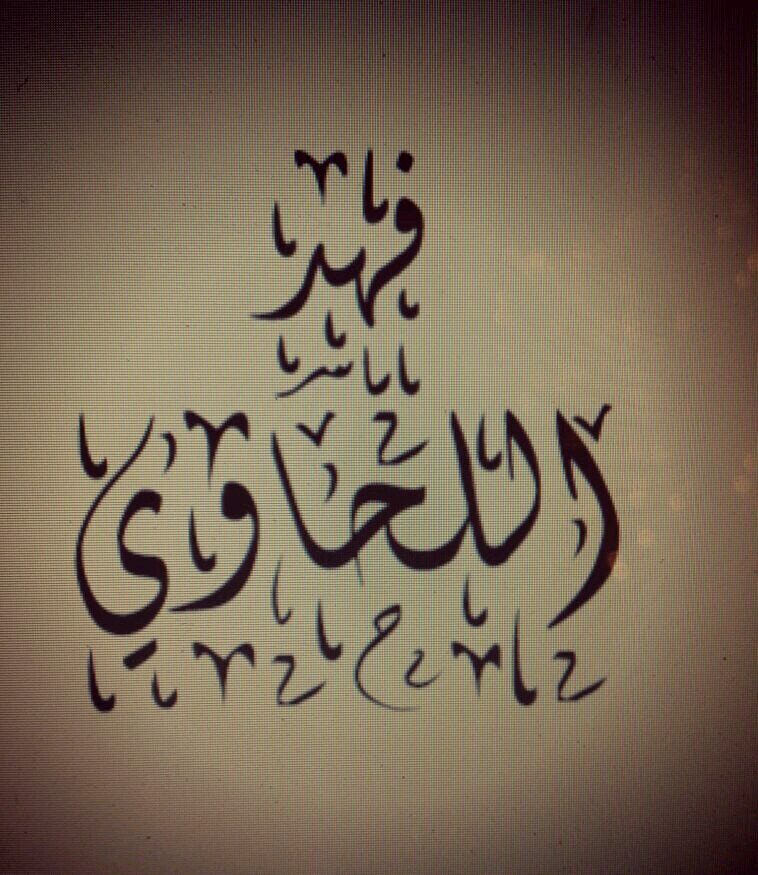 فهد
اللحاوي